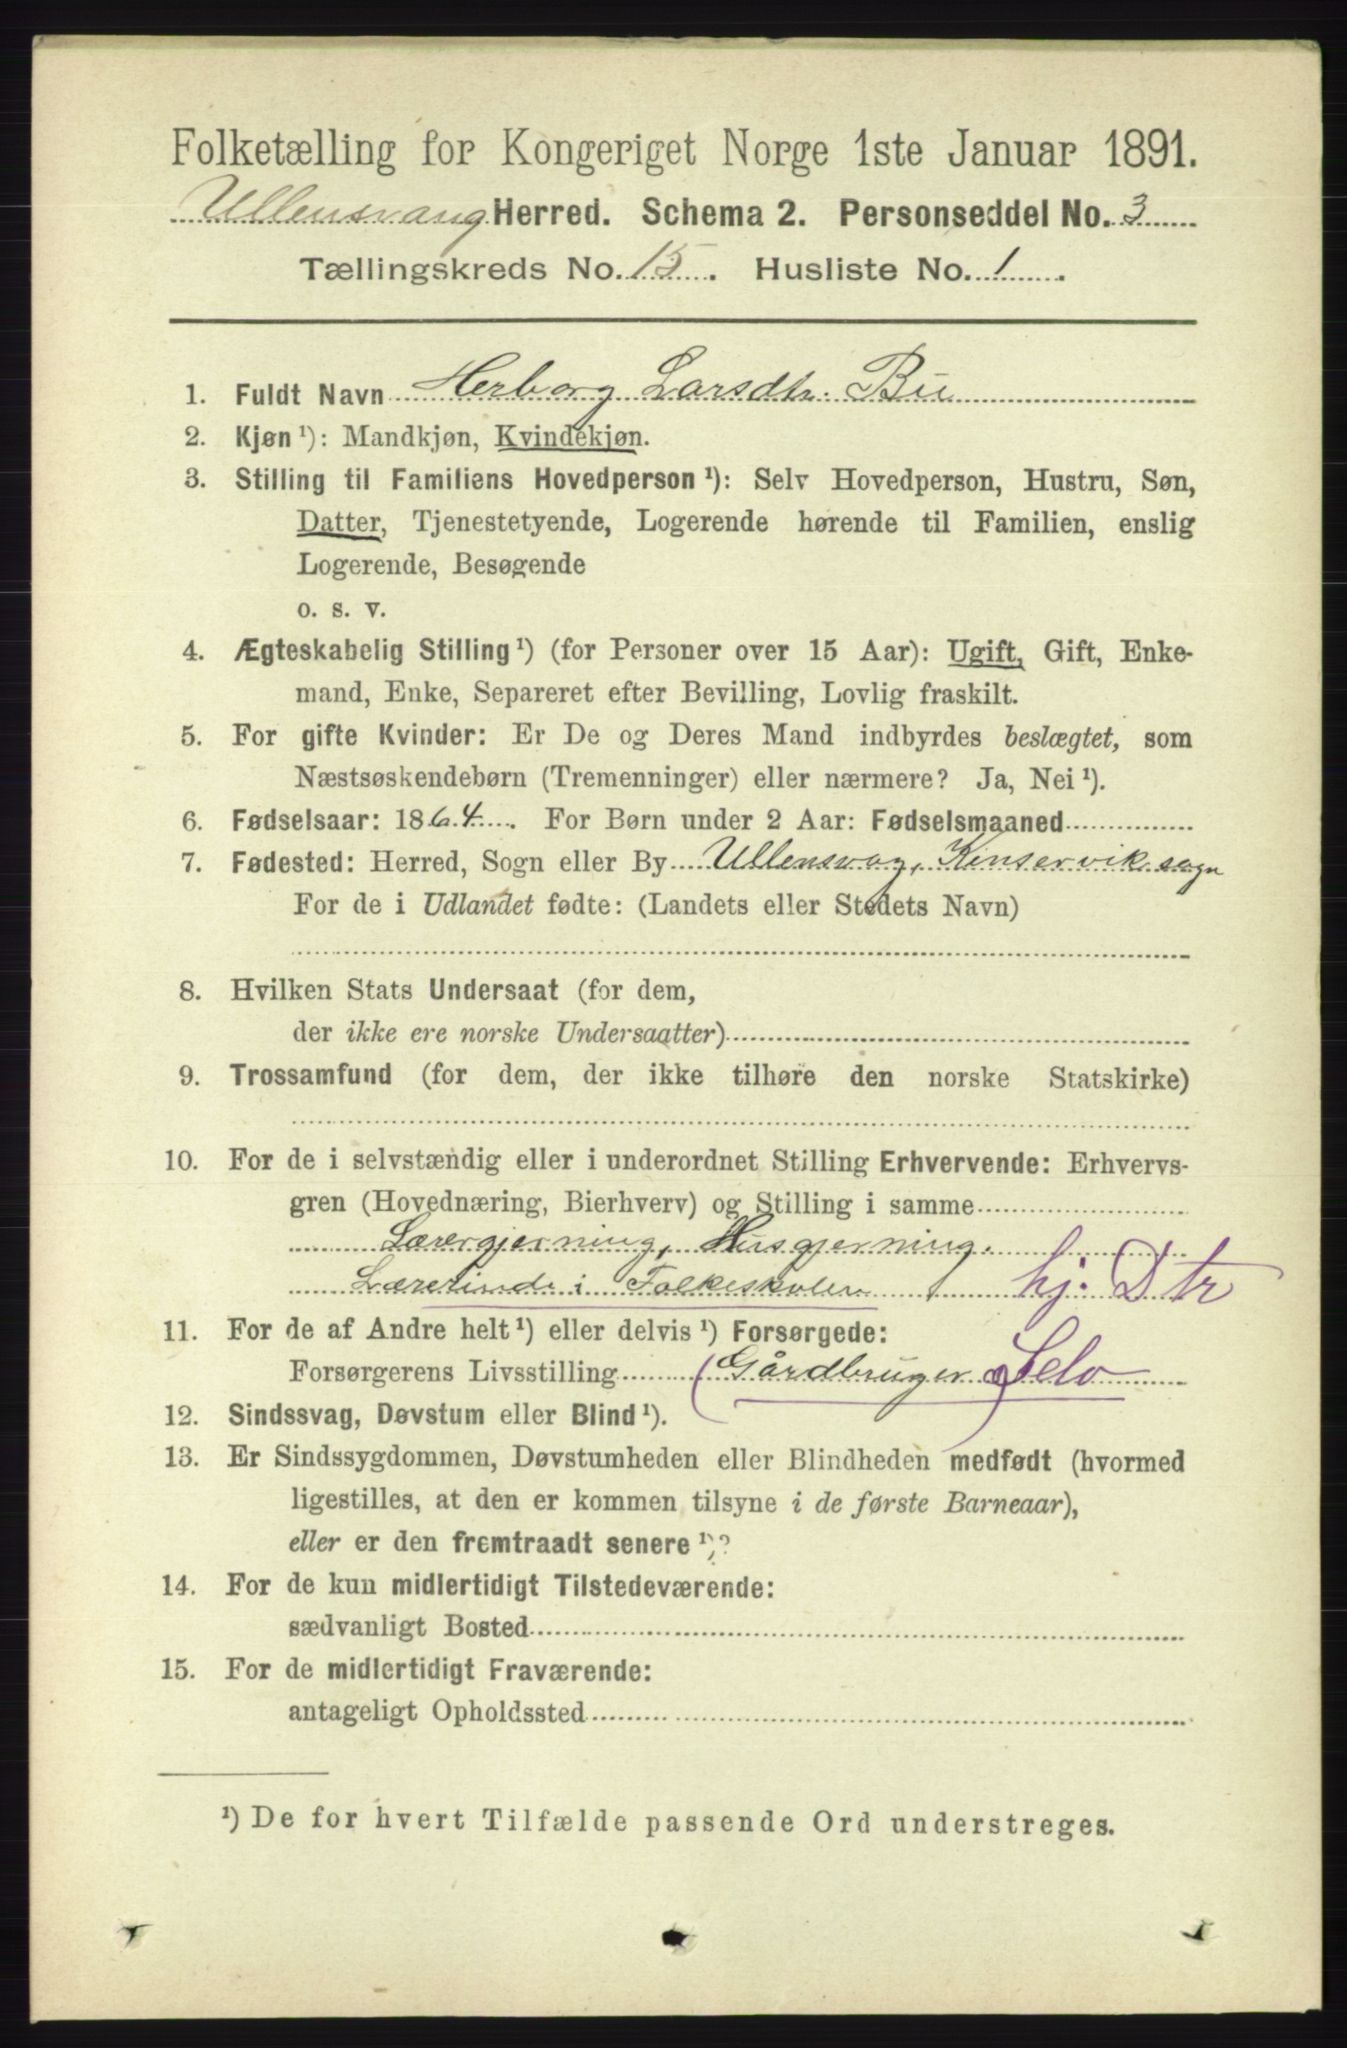 Folketælling for Kongeriget Norge 1ste Januar 1891.
Ullensvang Herred. Schema 2. Personseddel No. 3
Tællingskreds No. 15. Husliste No. 1.
1. Fuldt Navn Herborg Larsdtr. Bu
2. Kjøn¹): Mandkjøn, Kvindekjøn.
3. Stilling til Familiens Hovedperson¹): Selv Hovedperson, Hustru, Søn,
Datter, Tjenestetyende, Logerende hørende til Familien, enslig
Logerende, Besøgende
o. s. v.
4. Ægteskabelig Stilling¹) (for Personer over 15 Aar): Ugift, Gift, Enke-
mand, Enke, Separeret efter Bevilling, Lovlig fraskilt.
5. For gifte Kvinder: Er De og Deres Mand indbyrdes beslægtet, som
Næstsøskendebørn (Tremenninger) eller nærmere? Ja, Nei¹).
6. Fødselsaar: 1864. For Børn under 2 Aar: Fødselsmaaned
7. Fødested: Herred, Sogn eller By Ullensvag, Kinservik sogn
For de i Udlandet fødte: (Landets eller Stedets Navn)
8. Hvilken Stats Undersaat (for dem,
der ikke ere norske Undersaatter)
9. Trossamfund (for dem, der ikke tilhøre den norske Statskirke)
10. For de i selvstændig eller i underordnet Stilling Erhvervende: Erhvervs-
gren (Hovednæring, Bierhverv) og Stilling i samme
Lærergjerning, Husgjerning.
Lærerinde i Folkeskolen hj. Dtr
11. For de af Andre helt¹) eller delvis¹) Forsørgede:
Forsørgerens Livsstilling (Gårdbruger) Selv
12. Sindssvag, Døvstum eller Blind¹).
13. Er Sindssygdommen, Døvstumheden eller Blindheden medfødt (hvormed
ligestilles, at den er kommen tilsyne i de første Barneaar),
eller er den fremtraadt senere¹)?
14. For de kun midlertidigt Tilstedeværende:
sædvanligt Bosted
15. For de midlertidigt Fraværende:
antageligt Opholdssted
¹) De for hvert Tilfælde passende Ord understreges.